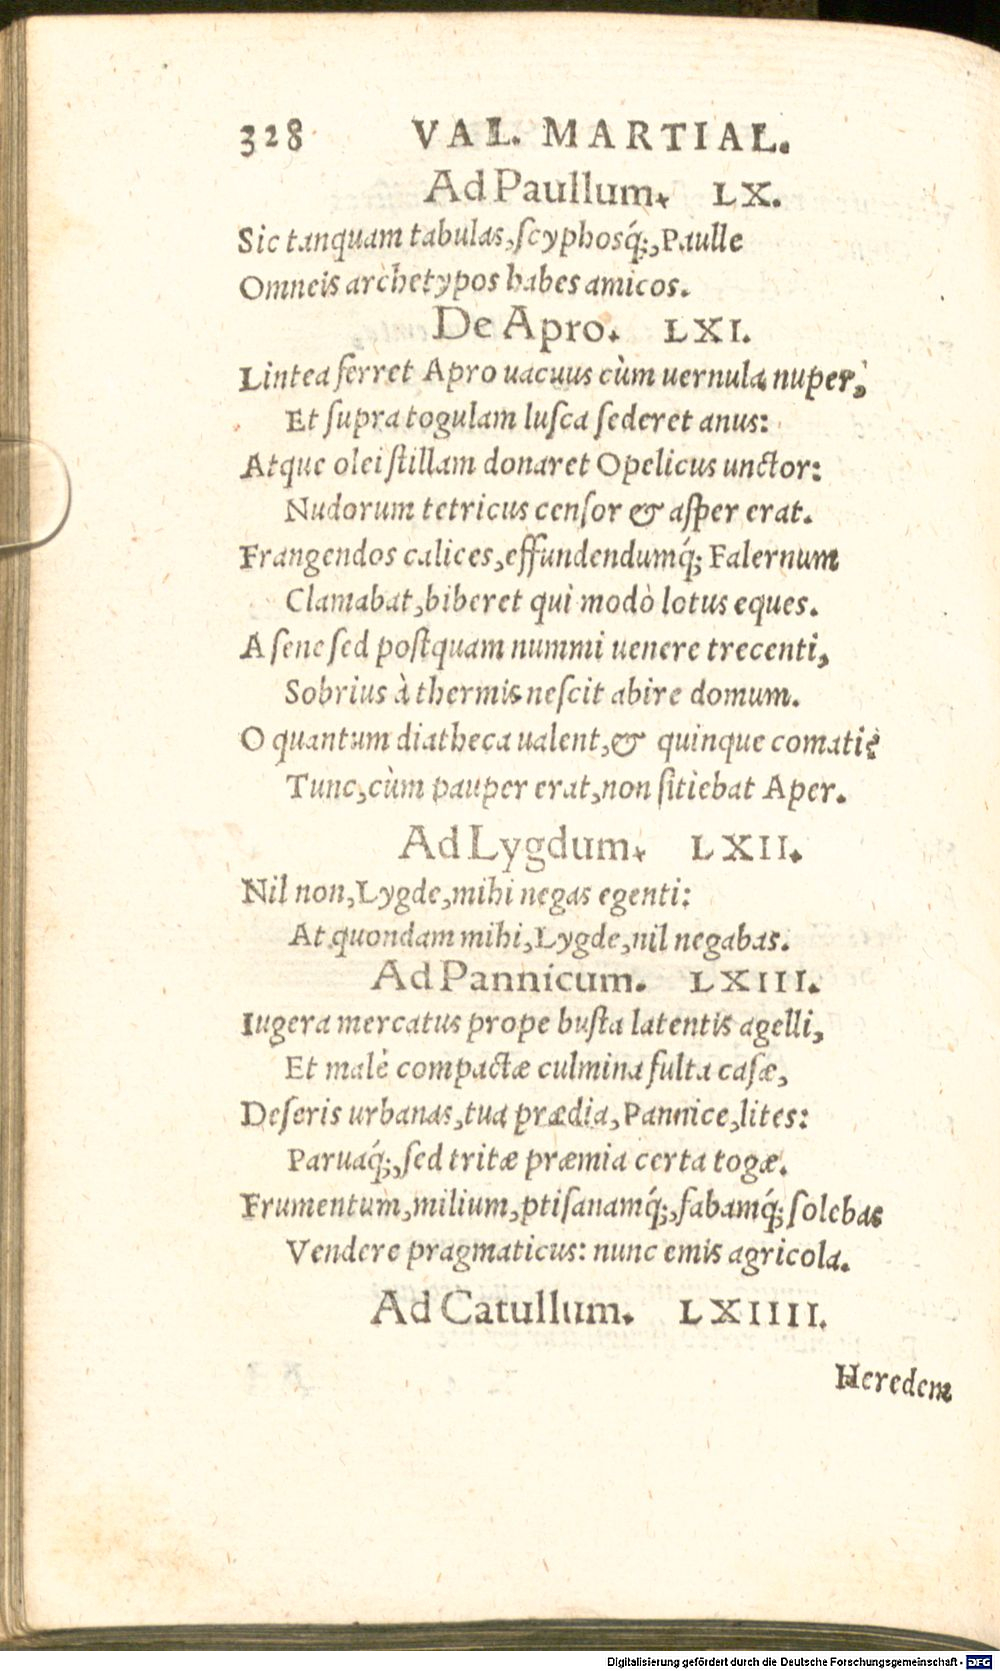 328 VAL. MARTIAL.
Ad Paullum. LX.
Sic tanquam tabulas, scyphosq́;, Paulle
Omneis archetypos habes amicos.
De Apro. LXI.
Lintea ferret Apro uacuus cùm uernula nuper,
Et supra togulam lusca sederet anus:
Atque olei stillam donaret Opelicus unctor:
Nudorum tetricus censor & asper erat.
Frangendos calices, effundendumq́; Falernum
Clamabat, biberet qui modò lotus eques.
A sene sed postquam nummi uenere trecenti,
Sobrius à thermis nescit abire domum.
O quantum diatheca ualent, & quinque comati?
Tunc, cùm pauper erat, non sitiebat Aper.
Ad Lygdum. LXII.
Nil non, Lygde, mihi negas egenti:
At quondam mihi, Lygde, nil negabas.
Ad Pannicum. LXIII.
Iugera mercatus prope busta latentis agelli,
Et malè compactæ culmina fulta casæ,
Deseris urbanas, tua prædia, Pannice, lites:
Paruaq́;, sed tritæ præmia certa togæ.
Frumentum, milium, ptisanamq́;, fabamq́; solebas
Vendere pragmaticus: nunc emis agricola.
Ad Catullum. LXIIII.
Heredem
Digitalisierung gefördert durch die Deutsche Forschungsgemeinschaft - DFG